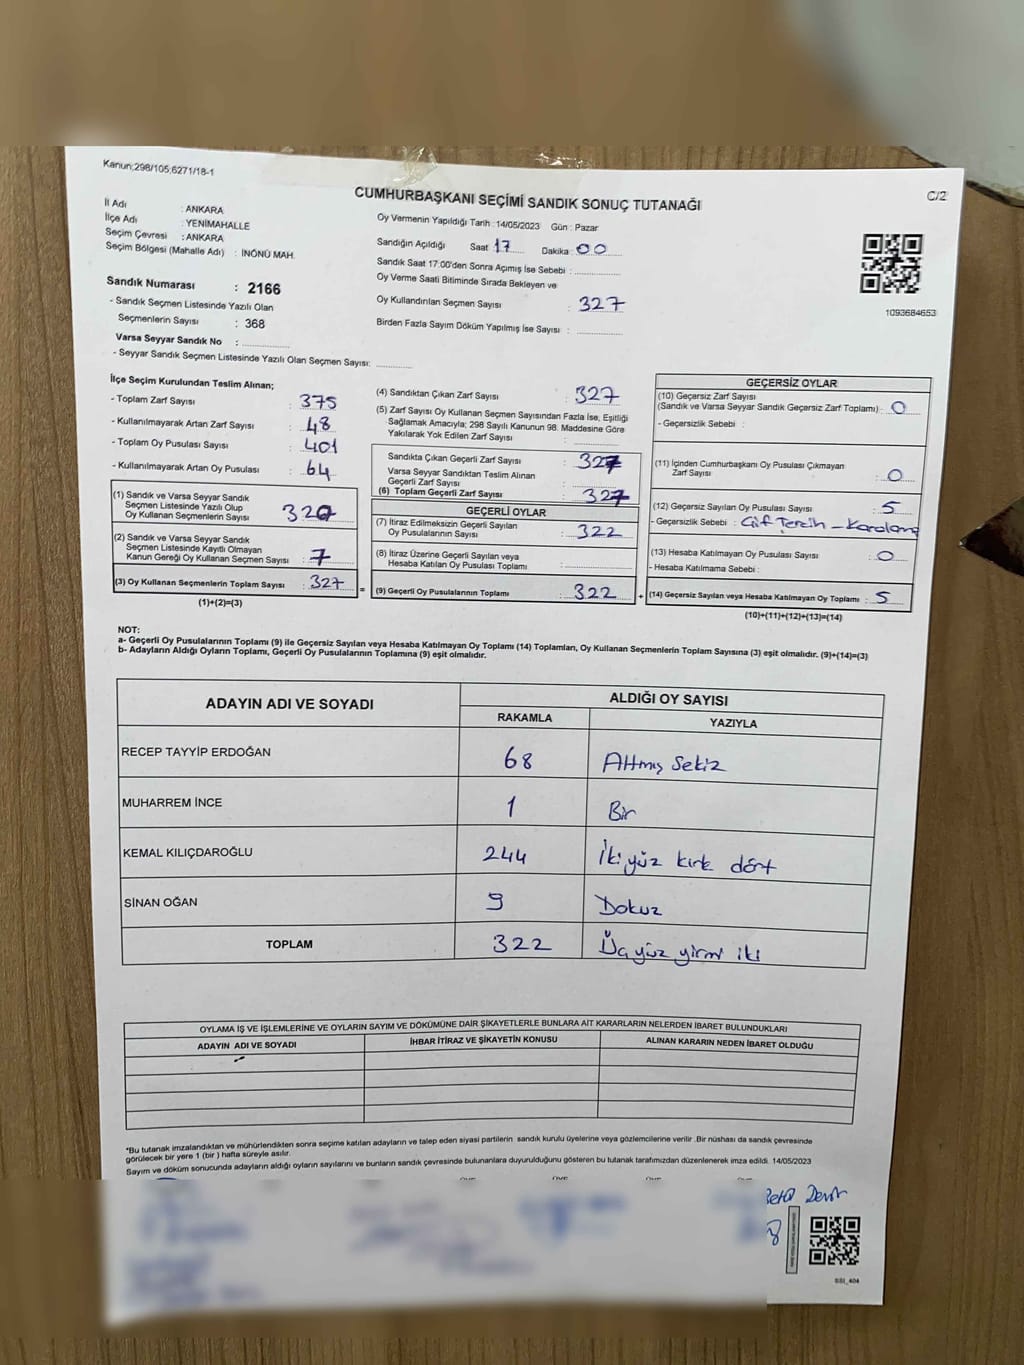 Kanun;298/105;6271/18-1
CUMHURBAŞKANI SEÇİMİ SANDIK SONUÇ TUTANAĞI
C/2
İl Adı : ANKARA
İlçe Adı : YENİMAHALLE
Seçim Çevresi : ANKARA
Seçim Bölgesi (Mahalle Adı) : İNÖNÜ MAH.
Sandık Numarası : 2166
- Sandık Seçmen Listesinde Yazılı Olan
Seçmenlerin Sayısı : 368
Varsa Seyyar Sandık No :
- Seyyar Sandık Seçmen Listesinde Yazılı Olan Seçmen Sayısı:
Oy Vermenin Yapıldığı Tarih :14/05/2023 Gün : Pazar
Sandığın Açıldığı Saat 17 Dakika 00
Sandık Saat 17:00'den Sonra Açımış İse Sebebi :
Oy Verme Saati Bitiminde Sırada Bekleyen ve
Oy Kullandırılan Seçmen Sayısı : 327
Birden Fazla Sayım Döküm Yapılmış İse Sayısı :
1093684653
İlçe Seçim Kurulundan Teslim Alınan;
- Toplam Zarf Sayısı : 375
- Kullanılmayarak Artan Zarf Sayısı : 48
- Toplam Oy Pusulası Sayısı : 401
- Kullanılmayarak Artan Oy Pusulası : 64
(1) Sandık ve Varsa Seyyar Sandık
Seçmen Listesinde Yazılı Olup
Oy Kullanan Seçmenlerin Sayısı 320
(2) Sandık ve Varsa Seyyar Sandık
Seçmen Listesinde Kayıtlı Olmayan
Kanun Gereği Oy Kullanan Seçmen Sayısı : 7
(3) Oy Kullanan Seçmenlerin Toplam Sayısı : 327 =
(1)+(2)=(3)
(4) Sandıktan Çıkan Zarf Sayısı : 327
(5) Zarf Sayısı Oy Kullanan Seçmen Sayısından Fazla İse; Eşitliği
Sağlamak Amacıyla; 298 Sayılı Kanunun 98. Maddesine Göre
Yakılarak Yok Edilen Zarf Sayısı :
Sandıkta Çıkan Geçerli Zarf Sayısı : 327
Varsa Seyyar Sandıktan Teslim Alınan
Geçerli Zarf Sayısı :
(6) Toplam Geçerli Zarf Sayısı : 327
GEÇERLİ OYLAR
(7) İtiraz Edilmeksizin Geçerli Sayılan
Oy Pusulalarının Sayısı : 322
(8) İtiraz Üzerine Geçerli Sayılan veya
Hesaba Katılan Oy Pusulası Toplamı :
(9) Geçerli Oy Pusulalarının Toplamı : 322 +
GEÇERSİZ OYLAR
(10) Geçersiz Zarf Sayısı
(Sandık ve Varsa Seyyar Sandık Geçersiz Zarf Toplamı) : 0
- Geçersizlik Sebebi :
(11) İçinden Cumhurbaşkanı Oy Pusulası Çıkmayan
Zarf Sayısı : 0
(12) Geçersiz Sayılan Oy Pusulası Sayısı : 5
- Geçersizlik Sebebi : Çift Tercih - Karalama
(13) Hesaba Katılmayan Oy Pusulası Sayısı : 0
- Hesaba Katılmama Sebebi :
(14) Geçersiz Sayılan veya Hesaba Katılmayan Oy Toplamı : 5
(10)+(11)+(12)+(13)=(14)
NOT:
a- Geçerli Oy Pusulalarının Toplamı (9) ile Geçersiz Sayılan veya Hesaba Katılmayan Oy Toplamı (14) Toplamları, Oy Kullanan Seçmenlerin Toplam Sayısına (3) eşit olmalıdır. (9)+(14)=(3)
b- Adayların Aldığı Oyların Toplamı, Geçerli Oy Pusulalarının Toplamına (9) eşit olmalıdır.
ADAYIN ADI VE SOYADI
ALDIĞI OY SAYISI
RAKAMLA YAZIYLA
RECEP TAYYİP ERDOĞAN 68 Altmış Sekiz
MUHARREM İNCE 1 Bir
KEMAL KILIÇDAROĞLU 244 İki yüz kırk dört
SİNAN OĞAN 9 Dokuz
TOPLAM 322 Üç yüz yirmi iki
OYLAMA İŞ VE İŞLEMLERİNE VE OYLARIN SAYIM VE DÖKÜMÜNE DAİR ŞİKAYETLERLE BUNLARA AİT KARARLARIN NELERDEN İBARET BULUNDUKLARI
ADAYIN ADI VE SOYADI İHBAR İTİRAZ VE ŞİKAYETİN KONUSU ALINAN KARARIN NEDEN İBARET OLDUĞU
*Bu tutanak imzalandıktan ve mühürlendikten sonra seçime katılan adayların ve talep eden siyasi partilerin sandık kurulu üyelerine veya gözlemcilerine verilir .Bir nüshası da sandık çevresinde
görülecek bir yere 1 (bir ) hafta süreyle asılır.
Sayım ve döküm sonucunda adayların aldığı oyların sayılarını ve bunların sandık çevresinde bulunanlara duyurulduğunu gösteren bu tutanak tarafımızdan düzenlenerek imza edildi. 14/05/2023
SSI_404